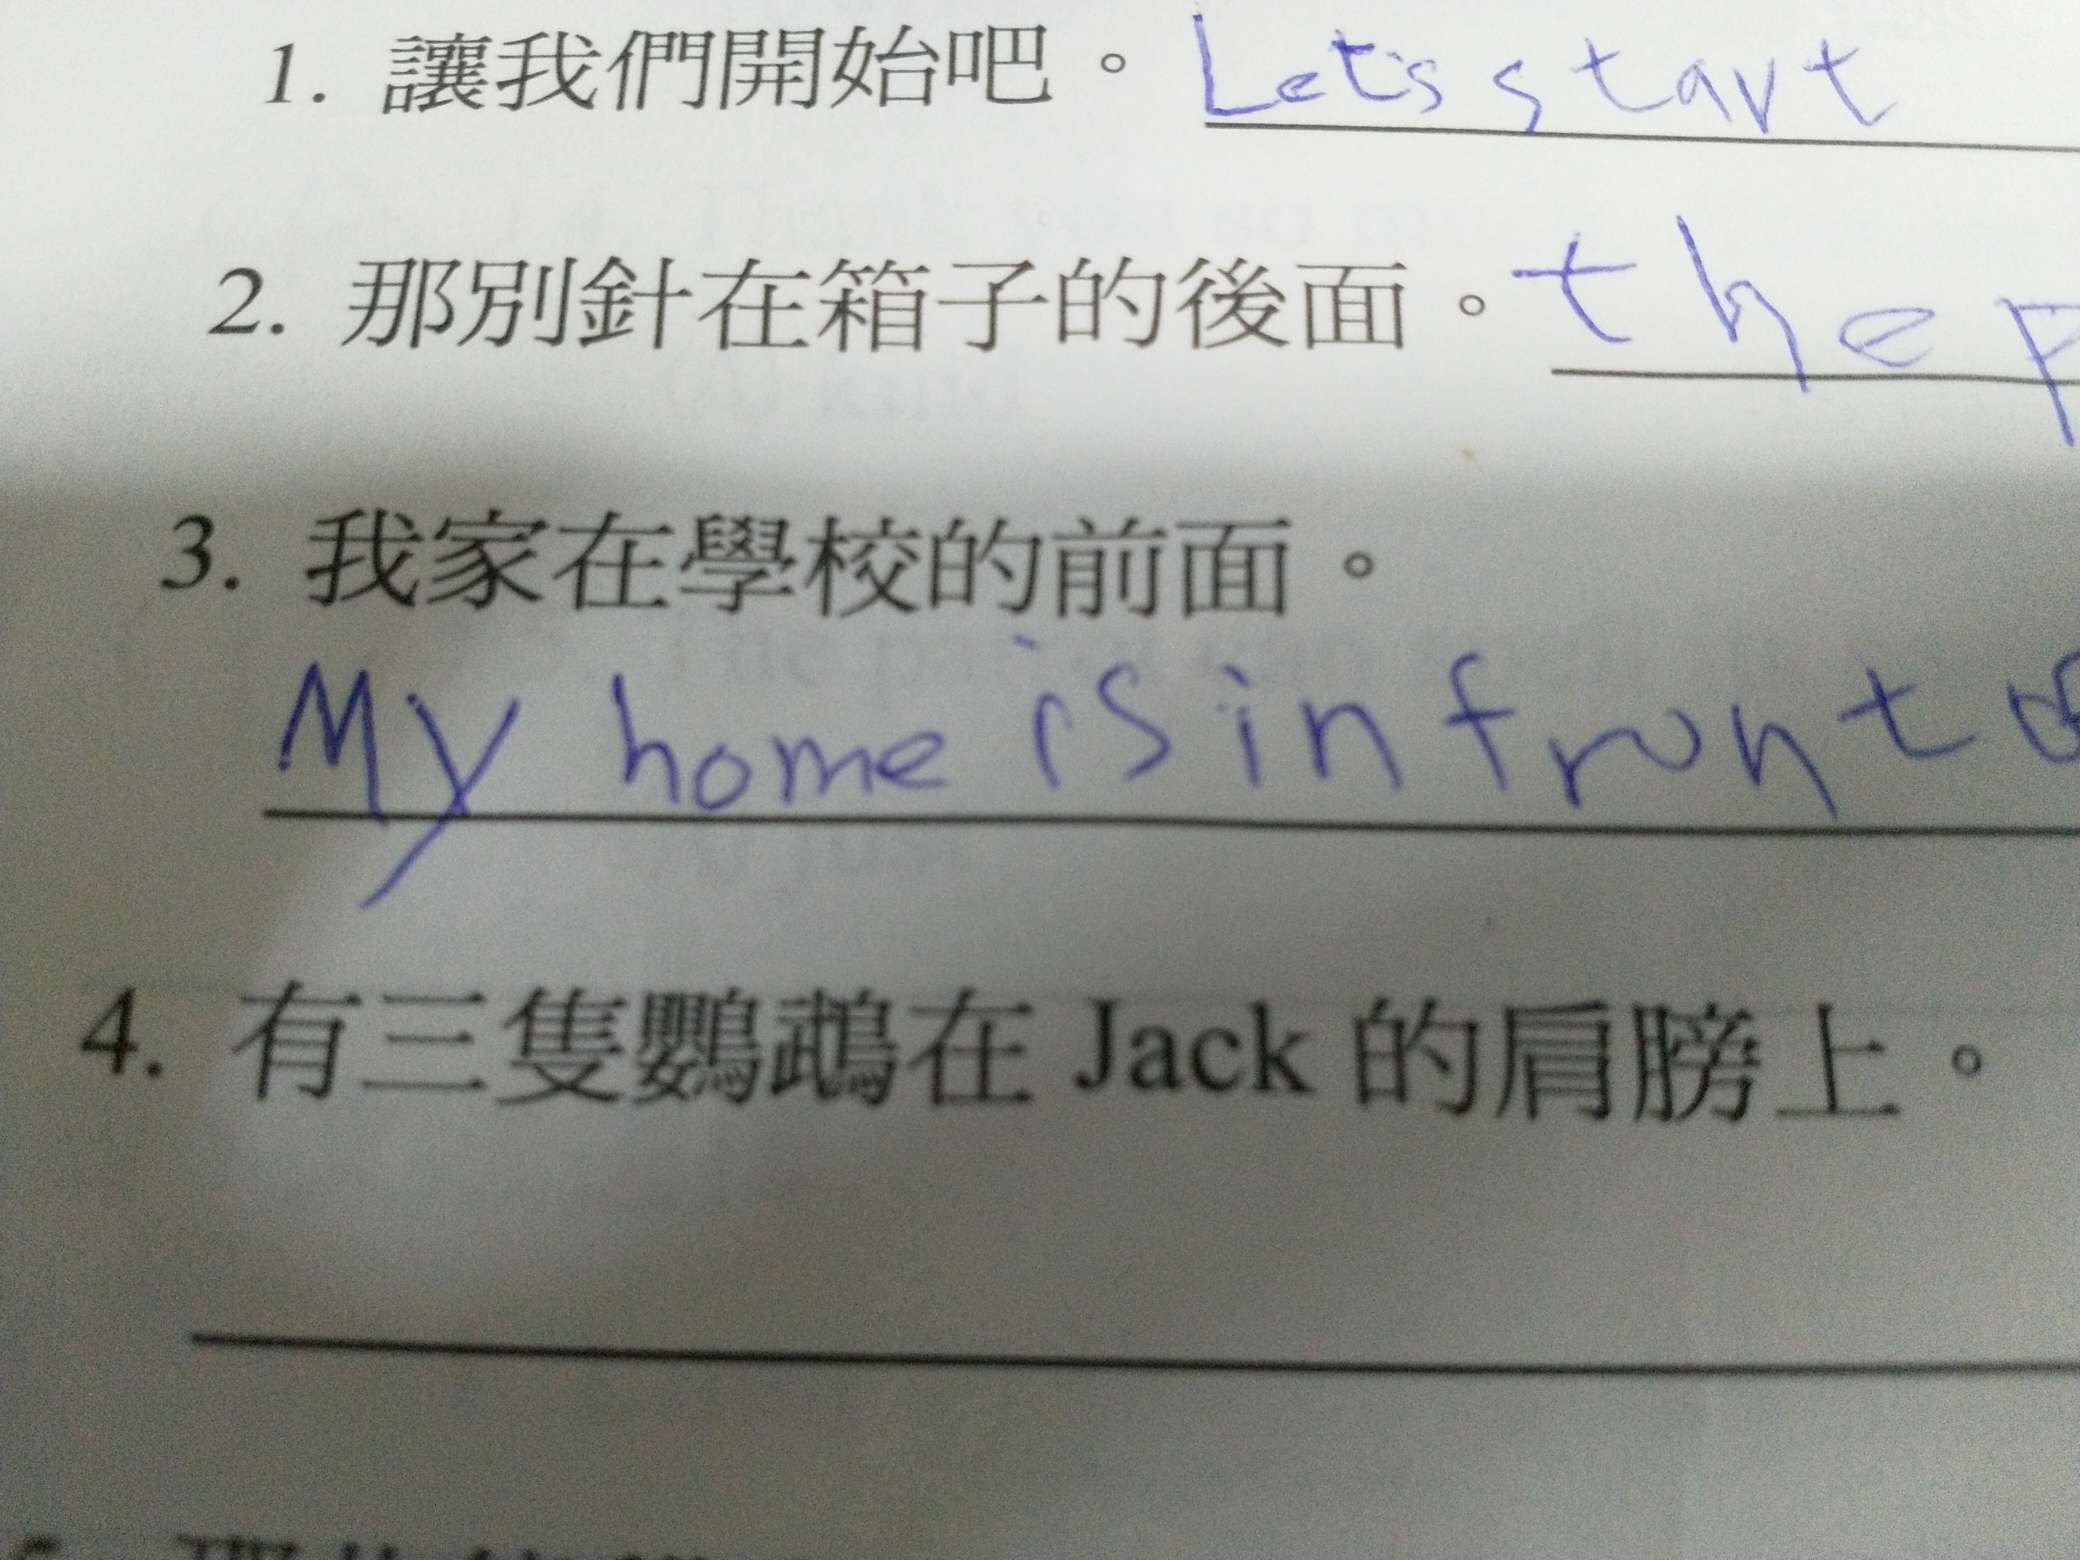 1. 讓我們開始吧。 Let's start
2. 那別針在箱子的後面。 the p
3. 我家在學校的前面。
My home is in front of
4. 有三隻鸚鵡在 Jack 的肩膀上。